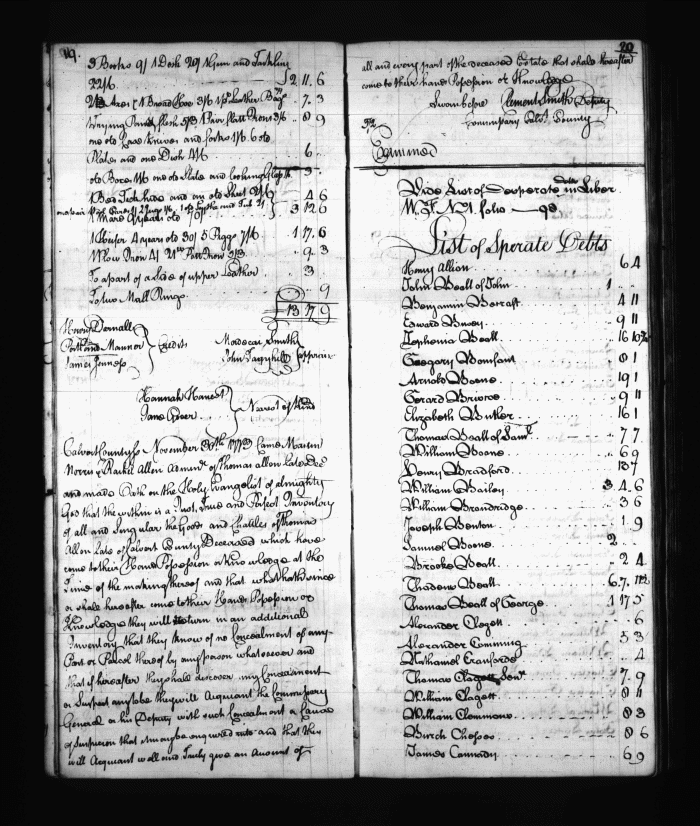 19.
3 Books 9/ 1 Desk 20/ 1 Gun and
22/6 2 11. 6
1 Broad Hoe 3/6 Leather 7. 3
8 9
one old Knives and forks 1/6 6 old
Plates and one Dish 4/6 6
old Boxes 1/6 one old Slate and Looking Glass 3
1 Bed Tick hide and an old Sheet 2/6 4 6
1 Mare 9 years old 70/ 3 12 6
1 Heifer 4 years old 30/ 5 Piggs 7/6 1 17. 6
1 Plow Iron 4/ 21 lb Pott Iron 5/3 9. 3
To a part of a Side of upper Leather 3
To two Mall Rings 9
13 17 9
Henry Dernall
Portland Mannor Credits
James Jenness
Mordecai Smith
John Apprais
Hannah
Jane Greer
Nearest of Kind
Calvert County ss November 30th 1773 Came Martin
Norris & Rachel Allen Admin of Thomas Allen Late Dec
and made Oath on the Holy Evangelist of almighty
God that the within is a Just, True and Perfect Inventory
of all and Singular the Goods and Chattles of Thomas
Allen Late of Calvert County Deceased which have
come to their Hands Possession or Knowledge at the
Time of the making thereof and that what hath since
or shall hereafter come to their Hands Possession or
Knowledge they will return in an additional
Inventory that they know of no Concealment of any
Part or Parcel thereof by any person whatsoever and
that if hereafter they shall discover any Concealment
or Suspect any to be they will Acquaint the Commissary
General or his Deputy with such Concealment or Cause
of Suspicion that it may be enquired into and that they
will Acquaint well and Truly give an Amount of
20
all and every part of the deceased Estate that shall hereafter
come to their hands Possession or Knowledge
Sworn before Clement Smith Deputy
Commissary Calvt County
Examined
Vide List of Desperate Debts in Liber
W. F. No 1. folio 98
List of Sperate Debts
Henry Allison 6 4
John Beall of John 1
Benjamin Becraft 4 11
Edward Bwen 9 11
Zephenia Beall 16 10½
Gregory Bonifant 8 1
Arnold Boone 19 1
Gerard Briscoe 9 11
Elizabeth Butler 16 1
Thomas Beall of Saml 7 7
William Boone 6 9
Henry Bradford 13 7
William Bailey 3 4 6
William Brandridge 3 6
Joseph Benton 1 9
Samuel Boone 2
Brooke Beall 2 4
Thadeus Beall 6. 7. 11½
Thomas Beall of George 1 17 5
Alexander Clagett 6
Alexander Cumming 5 3
Nathaniel Craufords 4
Thomas Clagett Senr 7. 9
William Clagett 8 11
William Clemmons 8 3
Burch Cheses 8 6
James Cannady 6 9